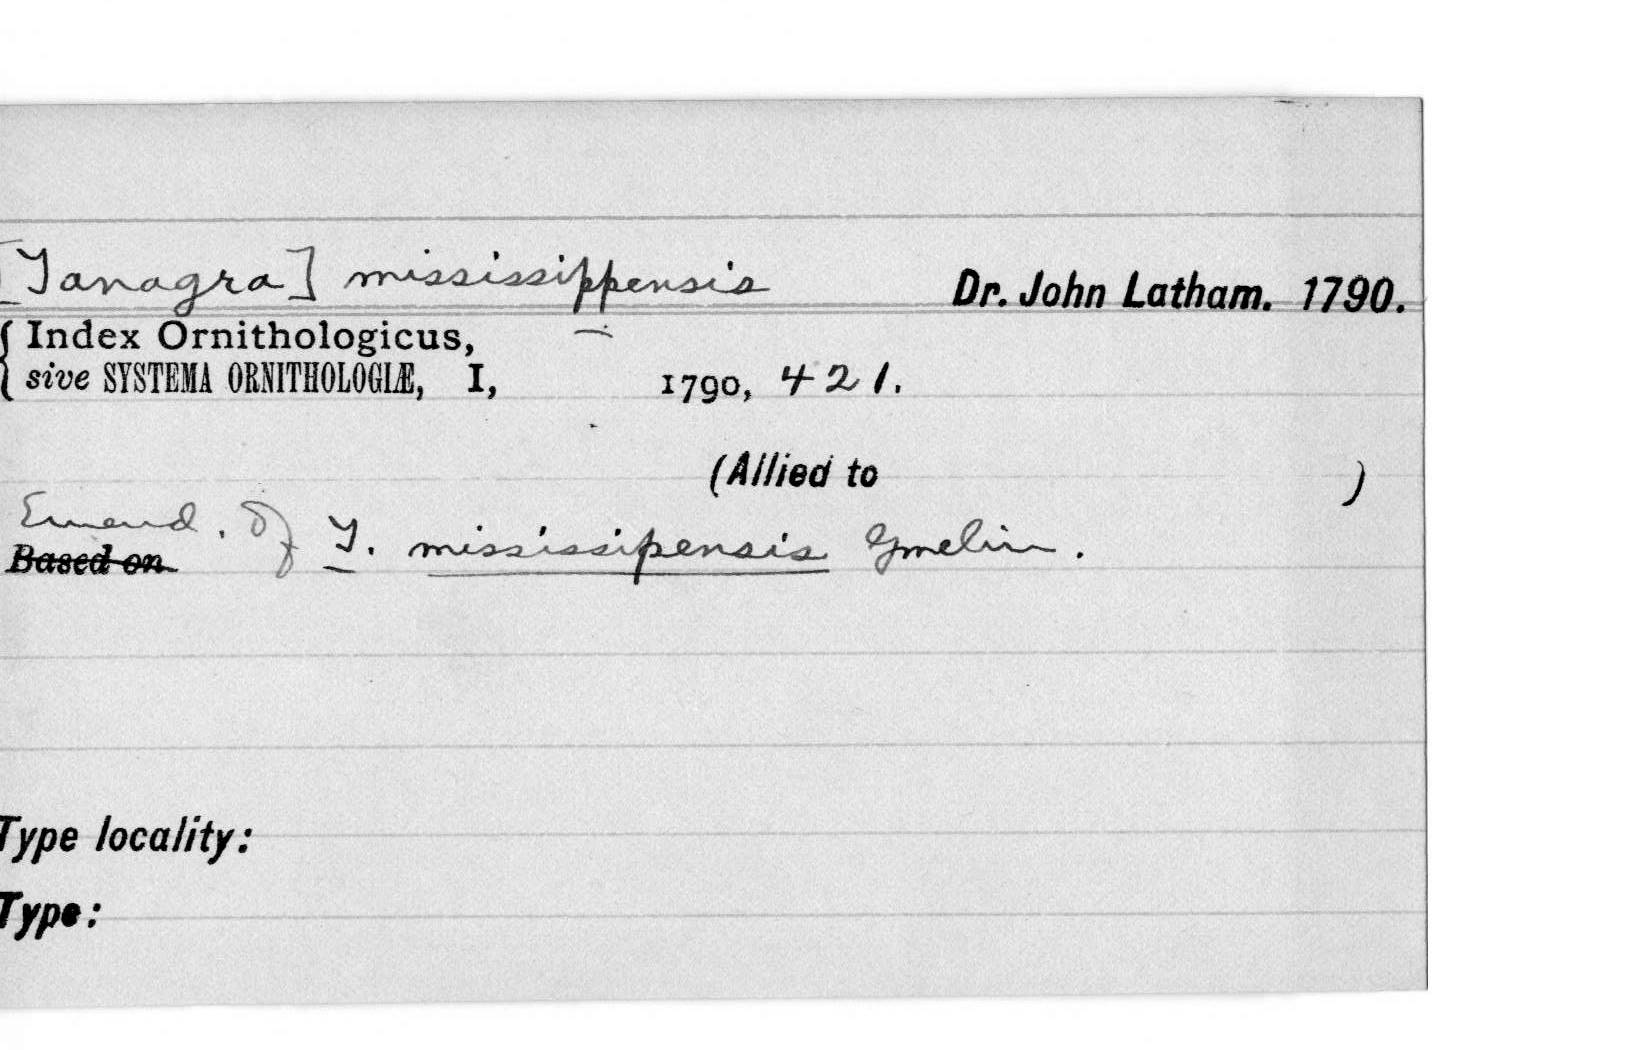 [Tanagra] mississippensis Dr. John Latham. 1790.
{ Index Ornithologicus,
sive SYSTEMA ORNITHOLOGIÆ, I, 1790, 421.
(Allied to )
Emend. of T. mississipensis Gmelin.
Based on
Type locality:
Type: